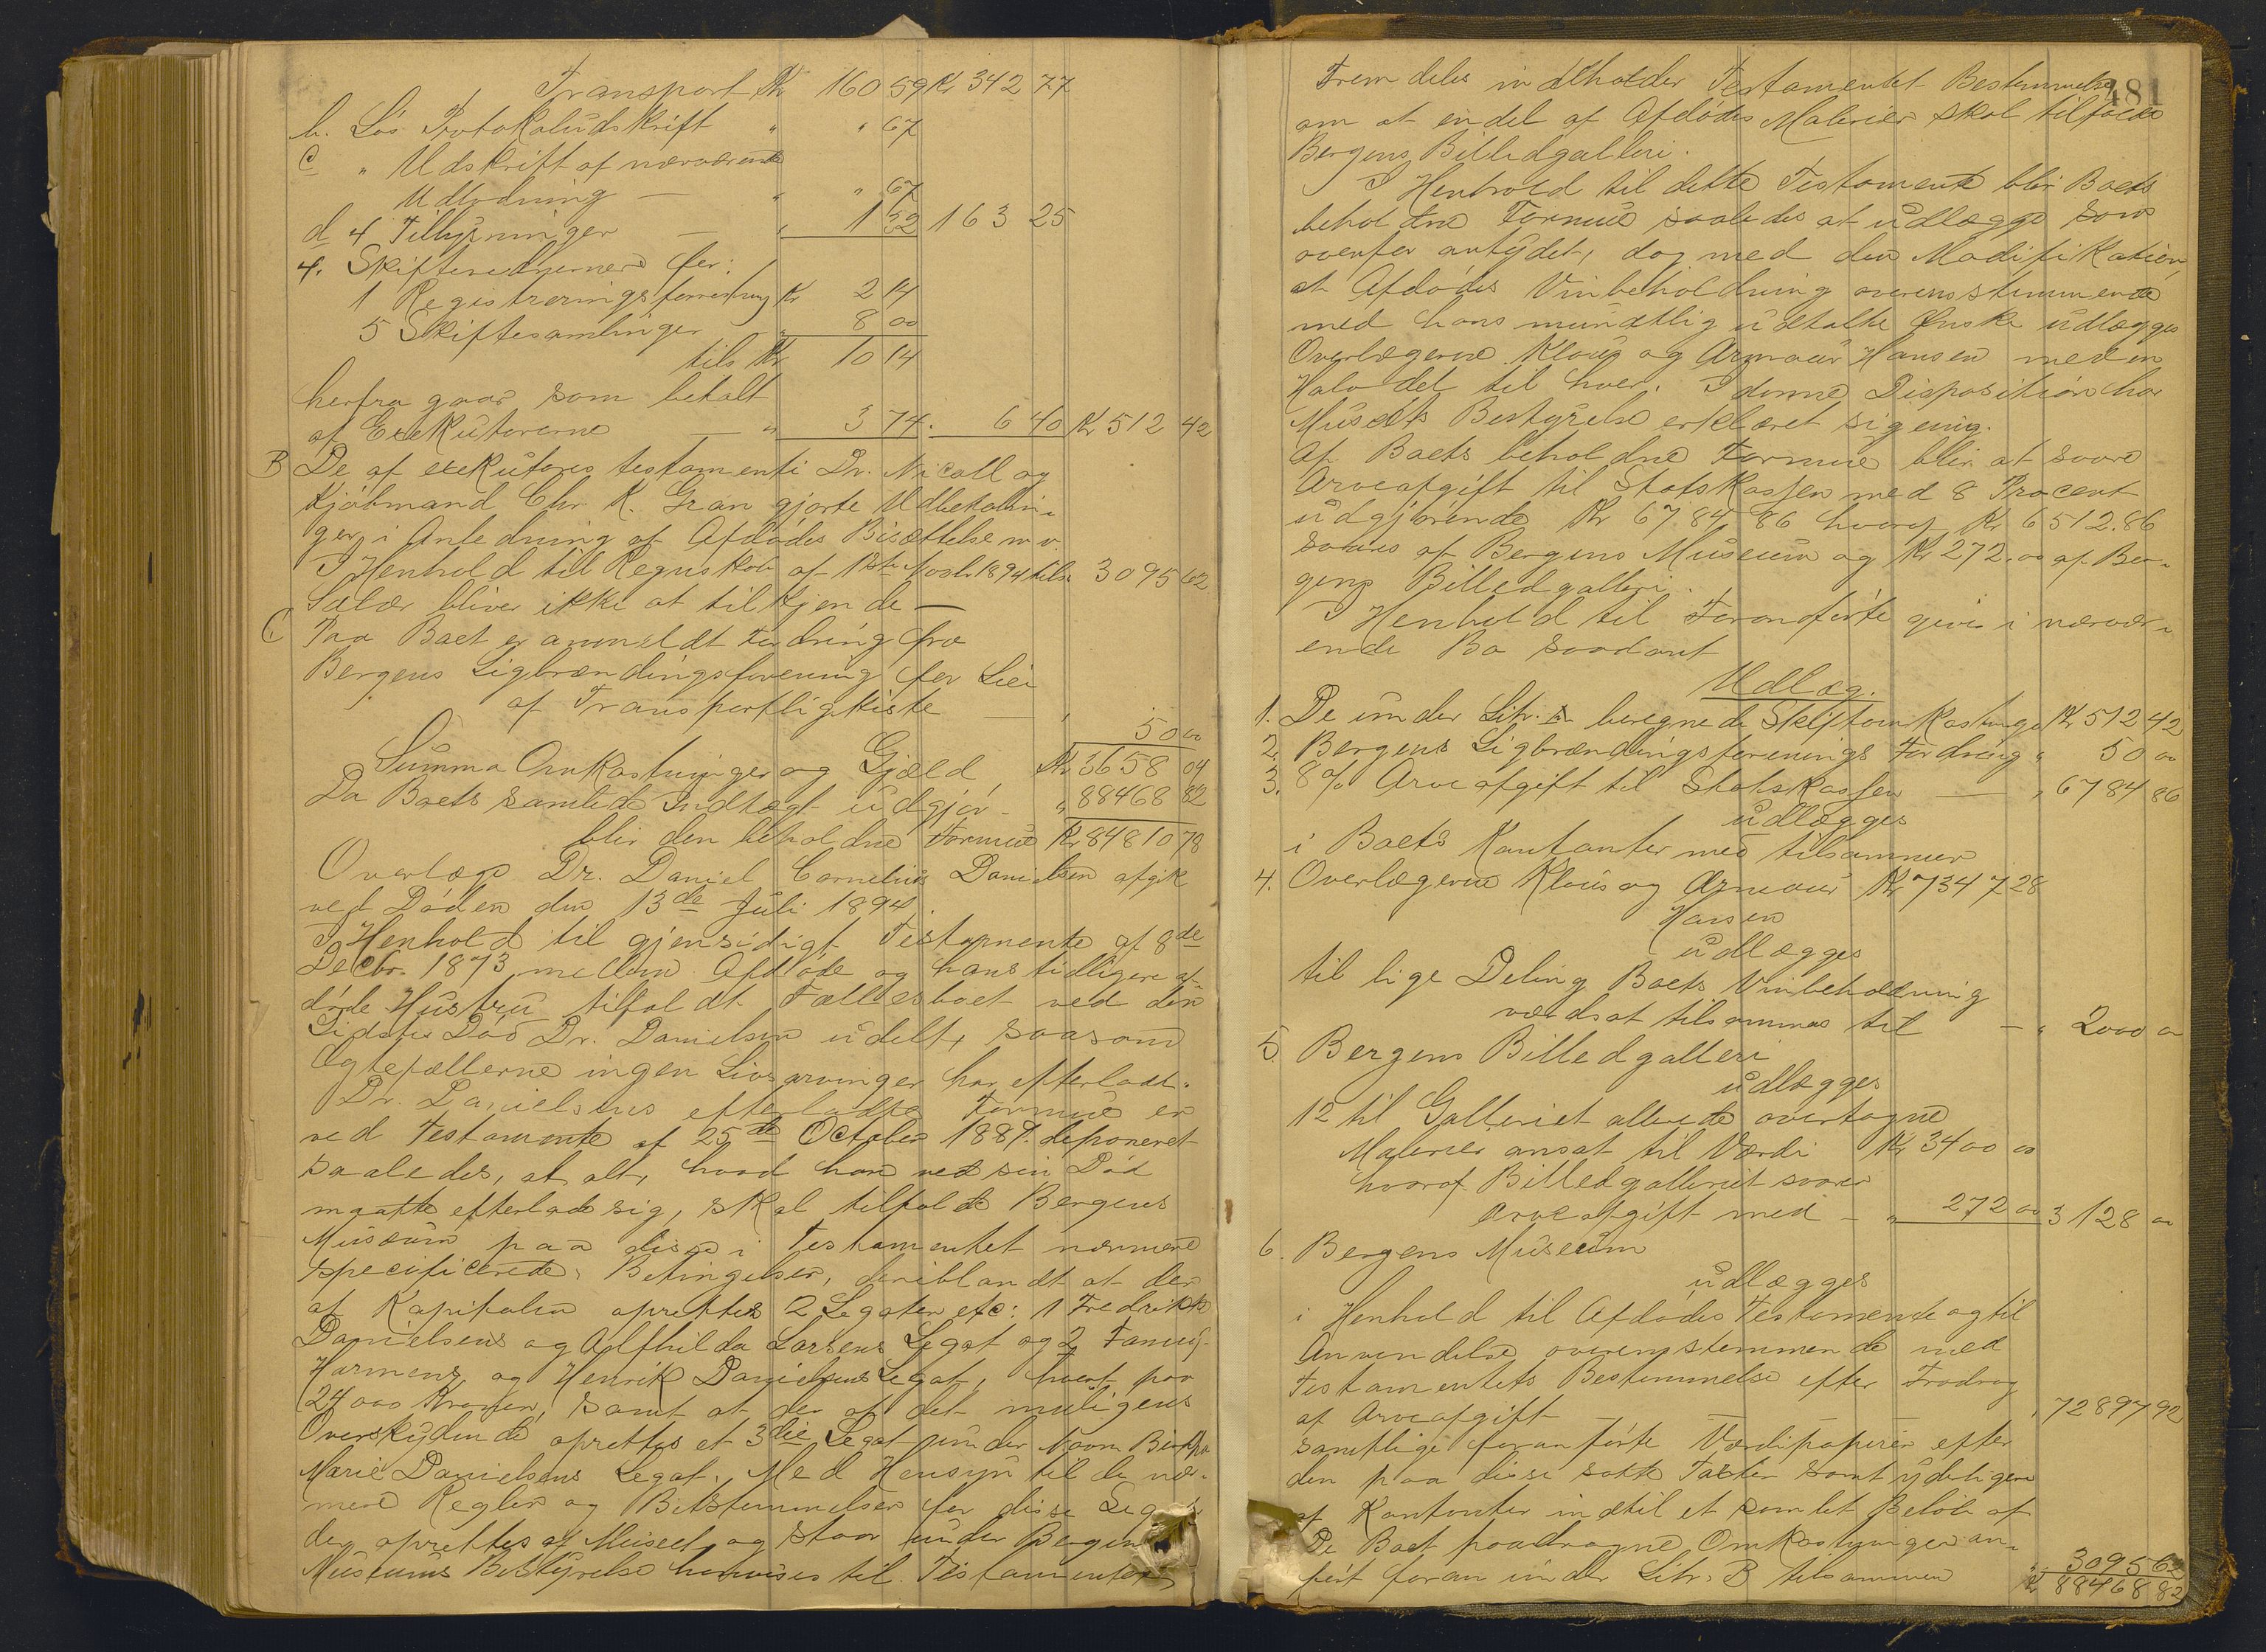 Transport Kr 160 59 Kr 342 77
b. Lös. Protokoludskrift " " 67
c " Udskrift af nærværende
Udlodning — " " 67
d 4 Tillysninger — " 1 32 163 25
4. Skifterednerne for:
1 Registreringsforretning Kr 2 14
5 Skiftesamlinger " 8 00
tils Kr 10 14
herfra gaar som betalt
af Exekutorerne — " 3 74. 6 40 Kr 512 42
B De af exekutores testamenti Dr. Nicoll og
Kjøbmand Chr. K. Gran gjorte Udbetalin-
ger i Anledning af Afdødes Bisættelse m.v.
I Henhold til Regnskab af 1ste Novbr 1894 tils. 3095 62
Salær bliver ikke at tilkjende —
C. Paa Boet er anmeldt Fordring fra
Bergens Ligbrændingsforening for Leie
af Transportligkiste — " 50 00
Summa Omkostninger og Gjæld Kr 3658 04
Da Boets samlede Indtægt udgjør - " 88468 82
blir den beholdne Formue Kr 84810 78
Overlæge Dr. Daniel Cornelius Danielsen afgik
ved Døden den 13de Juli 1894.
I Henhold til gjensidigt Testamente af 8de
Decbr. 1873 mellem Afdøde og hans tidligere af-
døde Hustru tilfaldt Fællesboet ved den
Sidstes Død Dr. Danielsen udelt, saasom
Ægtefællerne ingen Livsarvinger har efterladt.
Dr. Danielsens efterladte Formue er
ved Testamente af 25de October 1887 deponeret
saaledes, at alt, hvad han ved sin Død
maatte efterlade sig, skal tilfalde Bergens
Museum paa disse i Testamentet nærmere
specificerede Betingelser, deriblandt at der
af Kapitalen oprettes 2 Legater etc: 1 Fredrikke
Danielsens og Alfhilda Larsens Legat og 2 Fanny
Harmens og Henrik Danielsens Legat, hvert paa
24000 Kroner, samt at der af det muligens
Overskydende oprettes et 3die Legat under Navn Birthe
Marie Danielsens Legat. Med Hensyn til de nær-
mere Regler og Bestemmelser for disse Legater
der oprettes af Museet og staar under Bergens
Museums Bestyrelse henvises til Testamentet
481
Fremdeles indeholder Testamentet Bestemmelse
om at endel af Afdødes Malerier skal tilfalde
Bergens Billedgalleri.
I Henhold til dette Testamente blir Boets
beholdne Formue saaledes at udlægge som
ovenfor antydet, dog med den Modifikation,
at Afdødes Vinbeholdning overensstemmende
med hans mundtlig udtalte Ønske udlægges
Overlægerne Klous og Armauer Hansen med en
Halvdel til hver. I denne Disposition har
Musæets Bestyrelse erklæret sig enig.
Af Boets beholdne Formue blir at svare
Arveafgift til Statskassen med 8 Procent
udgjørende Kr 6784 86 hvoraf Kr 6512.86
svares af Bergens Museum og Kr 272.00 af Ber-
gens Billedgalleri.
I Henhold til Foranførte gives i nærvær-
ende Bo saadant
Udlæg.
1. De under Litr. A beregnede Skifteomkostninger Kr 512 42
2. Bergens Ligbrændingsforenings Fordring " 50 00
3. 8% Arveafgift til Statskassen — " 6784 86
udlægges
i Boets Kontanter med tilsammen
4. Overlægerne Klous og Armauer Kr 7347 28
Hansen
udlægges
til lige Deling Boets Vinbeholdning
værdsat tilsammen til — " 2000 00
5. Bergens Billedgalleri
udlægges
12 til Galleriet allerede overtagne
Malerier ansat til Værdi Kr 3400 00
hvoraf Billedgalleriet svarer
Arveafgift med — " 272 00 3128 00
6. Bergens Museum
udlægges
i Henhold til Afdødes Testamente og til
Anvendelse overensstemmende med
Testamentets Bestemmelse efter Fradrag
af Arveafgift — — — " 72897 92
samtlige foranførte Værdipapirer efter
den paa disse satte Taxter samt yderligere
af Kontanter indtil et samlet Beløb af
De Boet paadragne Omkostninger an-
ført foran under Litr. B tilsammen " 3095 62
Kr 88468 82